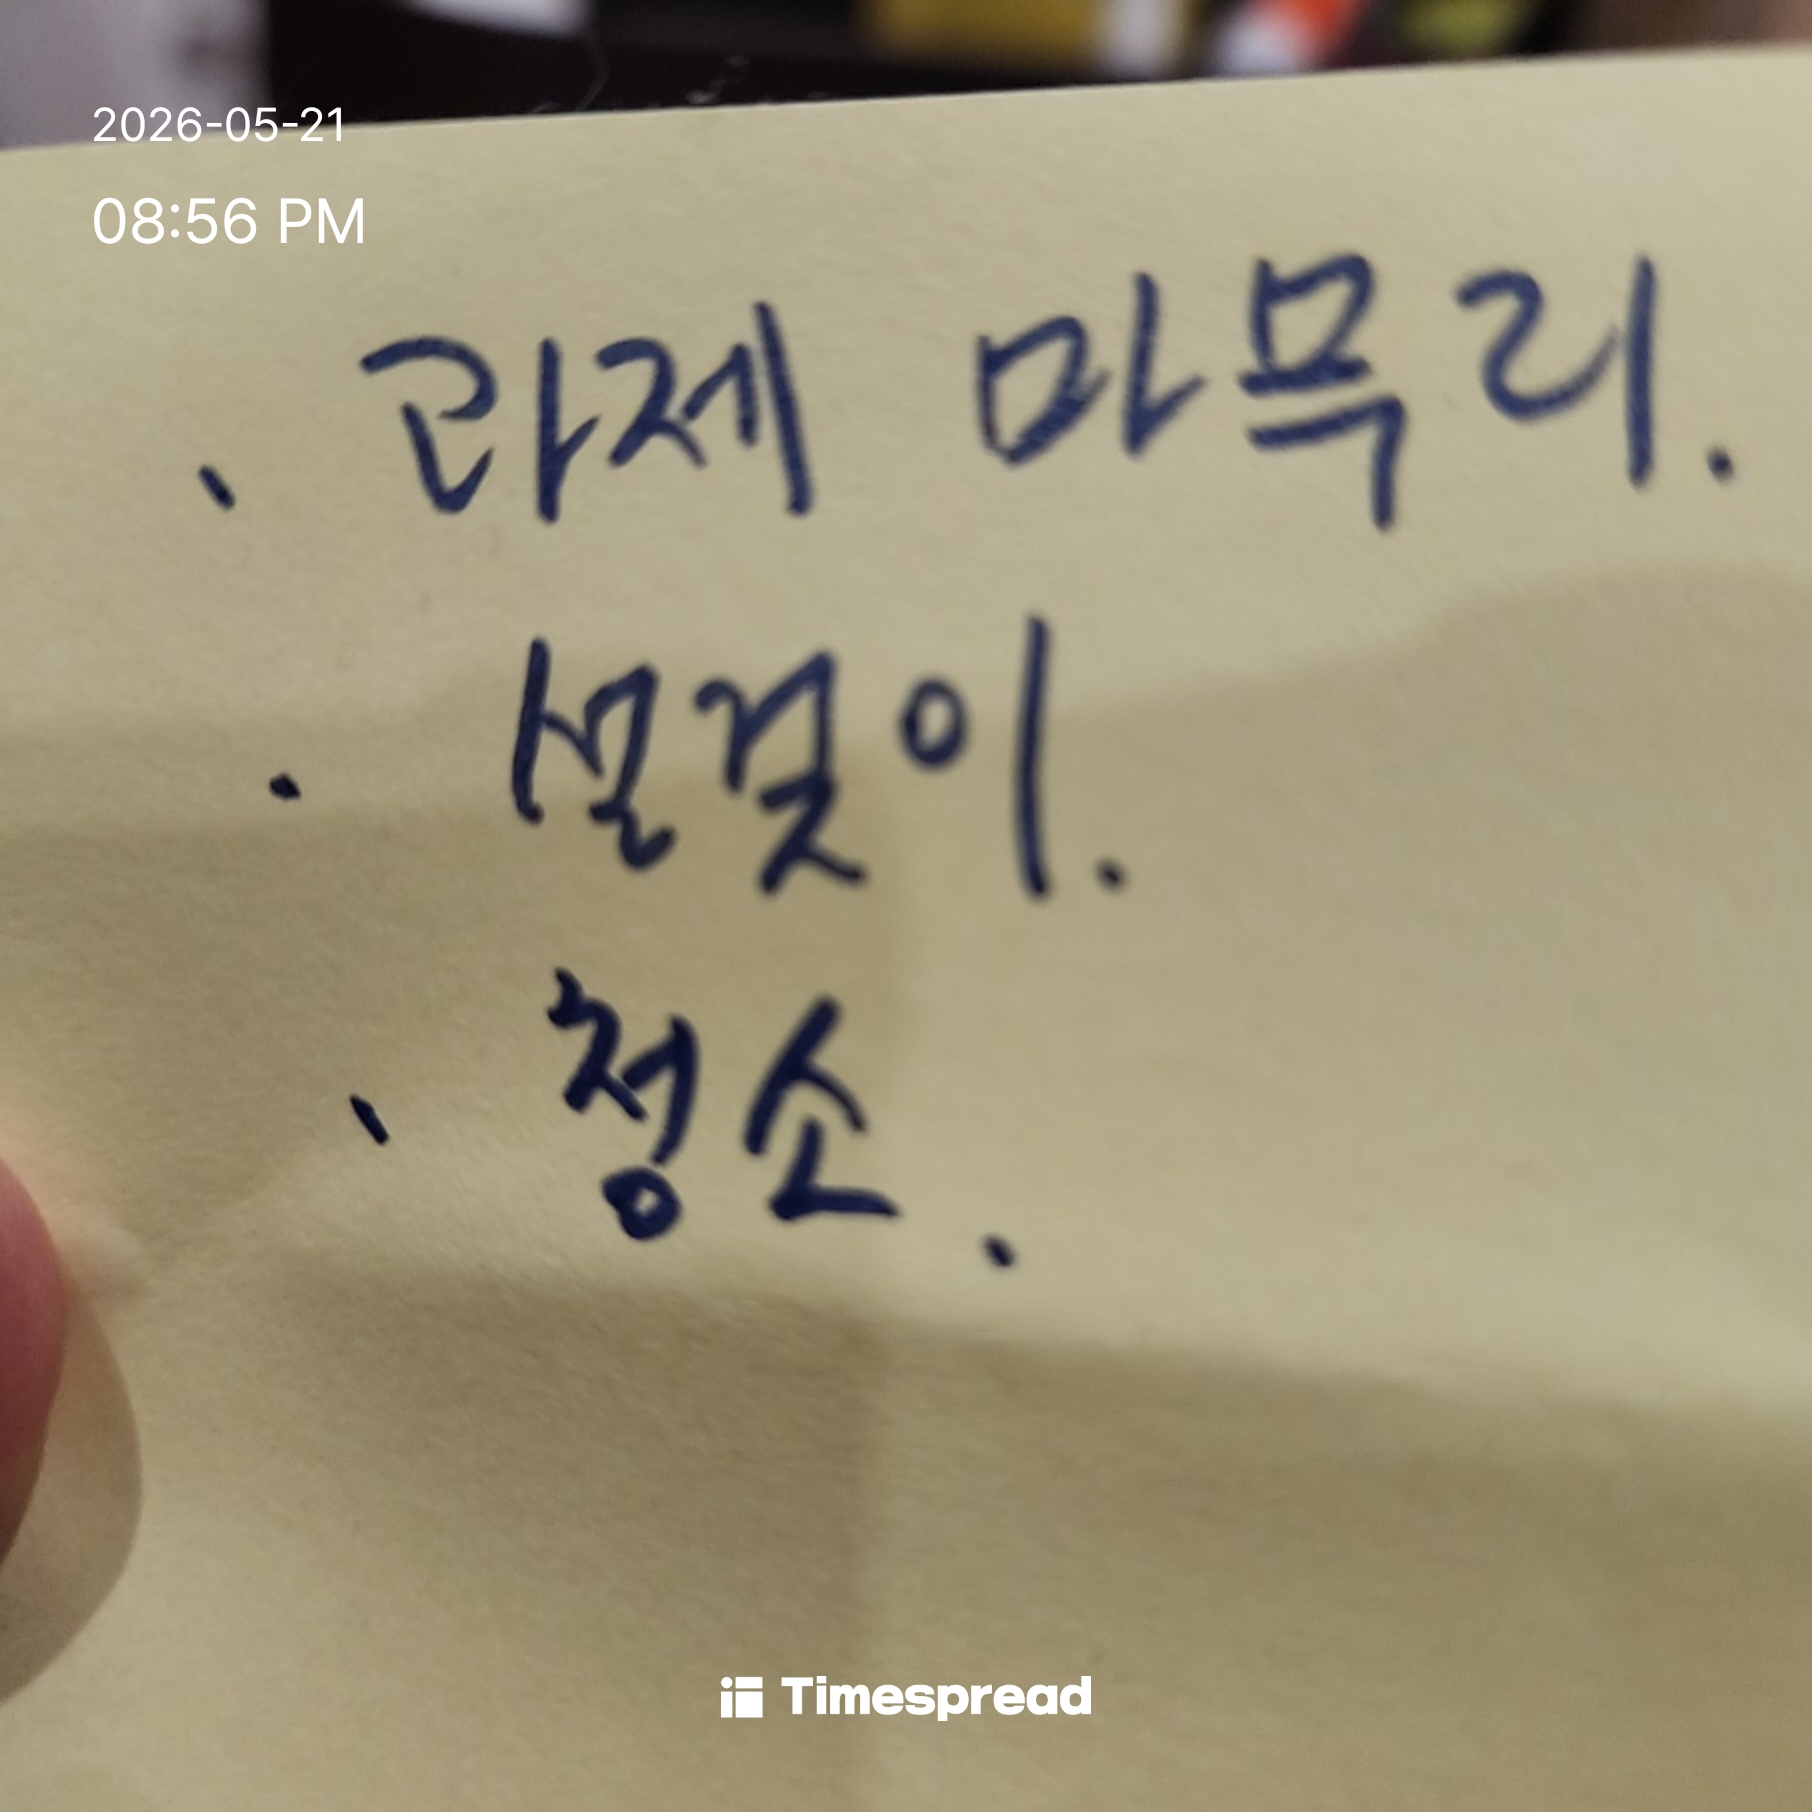 2026-05-21
08:56 PM
· 과제 마무리.
· 설겆이.
· 청소.
Timespread